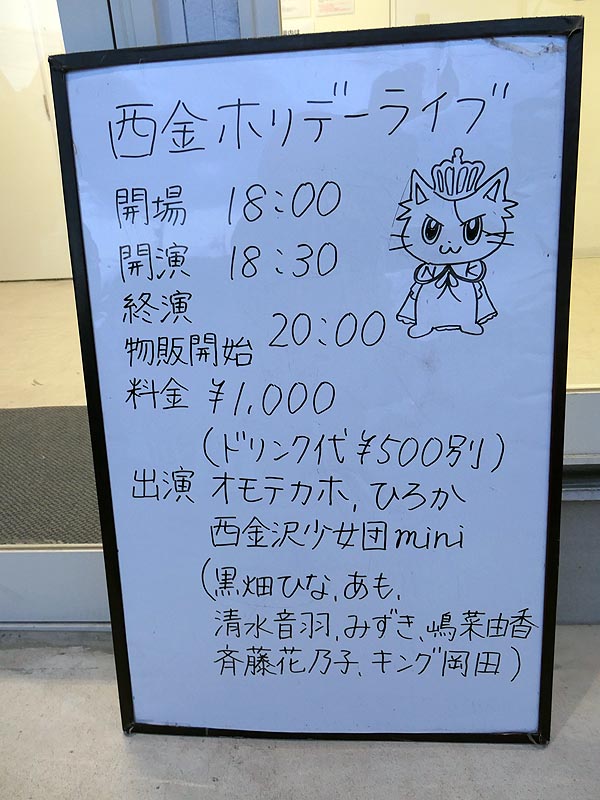 西金ホリデーライブ
開場 18:00
開演 18:30
終演
物販開始 20:00
料金 ¥1,000
(ドリンク代¥500別)
出演 オモテカホ、ひろか
西金沢少女団mini
(黒畑ひな、あも、
清水音羽、みずき、嶋菜由香
斉藤花乃子、キング岡田)
N K